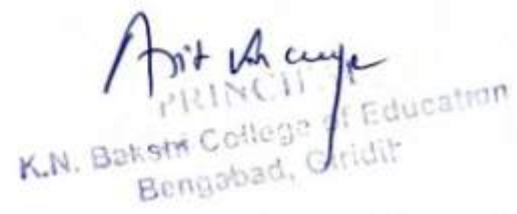 PRINCI
K.N. Bakshi College of Education
Bengabad, Giridih